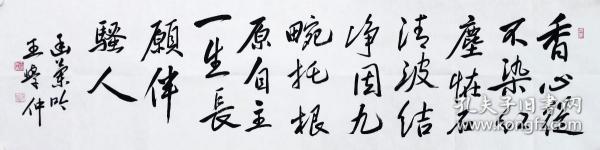 香心從
不染紅
塵恠石
清波結
净因九
畹托根
原自主
一生長
願伴
騷人
幽蘭吟
王學仲
孔夫子旧书网